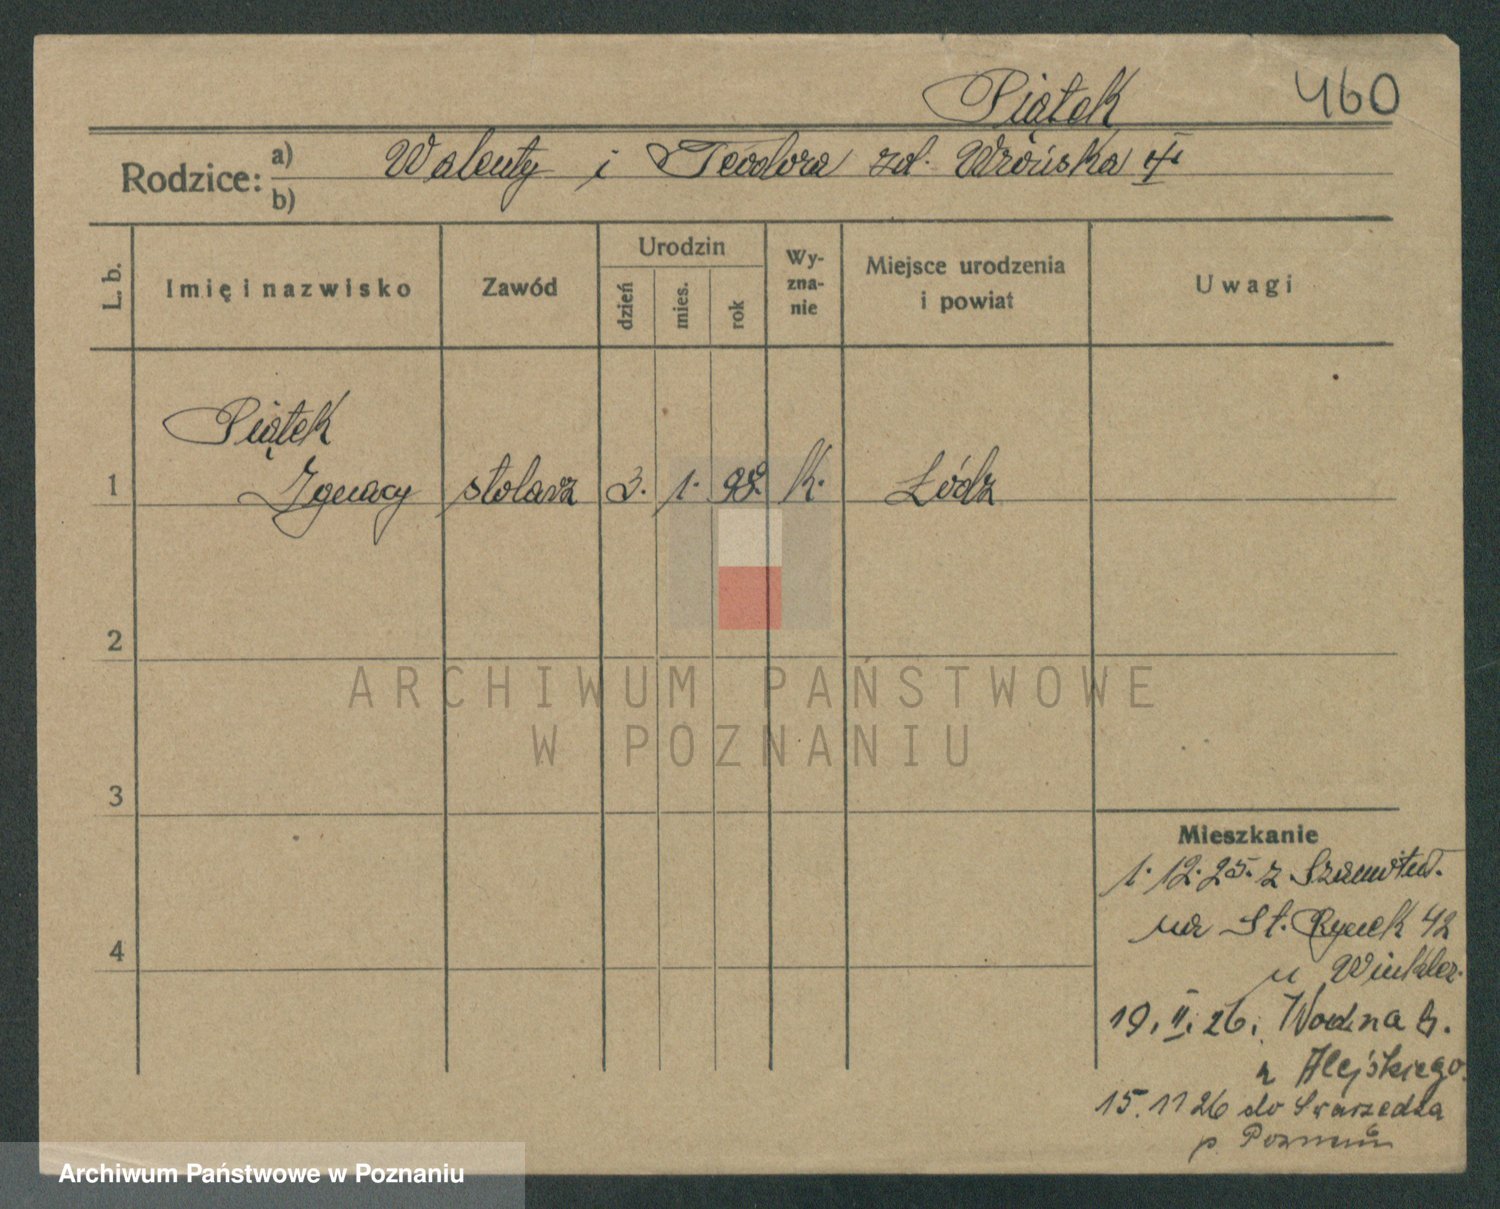 Piątek 460
Rodzice: a) Walenty i Teodora zd. Wrońska
b)
L. b.
Imię i nazwisko
Zawód
Urodzin
dzień
mies.
rok
Wy-
zna-
nie
Miejsce urodzenia
i powiat
Uwagi
Piątek
1 Ignacy stolarz 3. 1. 98. k. Łódz
2
3
4
Mieszkanie
1. 12. 25. z
na St. Rynek 42
u Winkler.
19. II. 26. Wodna
15. 11 26 do Swarzędza
p. Poznań
ARCHIWUM PAŃSTWOWE
W POZNANIU
Archiwum Państwowe w Poznaniu